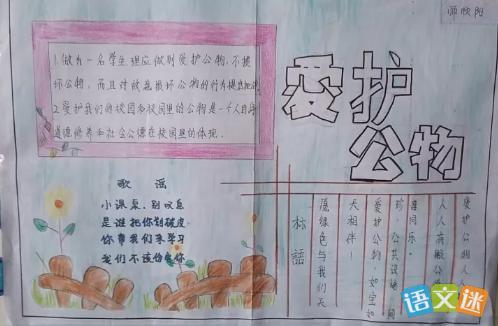 爱护
公物
1.做为一名学生理应做到爱护公物,不损
坏公物,而且对故意损坏公物的行为
2.爱护我们的校园和校园里的公物是一个人
道德修养和社会公德在校园里的体现.
歌 谣
小课桌,别叹息
是谁把你刮破皮
你帮我们来学习
我们不该伤害你
标語
爱护公物人
人人
喜同乐。
珍,公共设施
爱护公物,如
天相伴!
愿绿色与我们天
语文迷